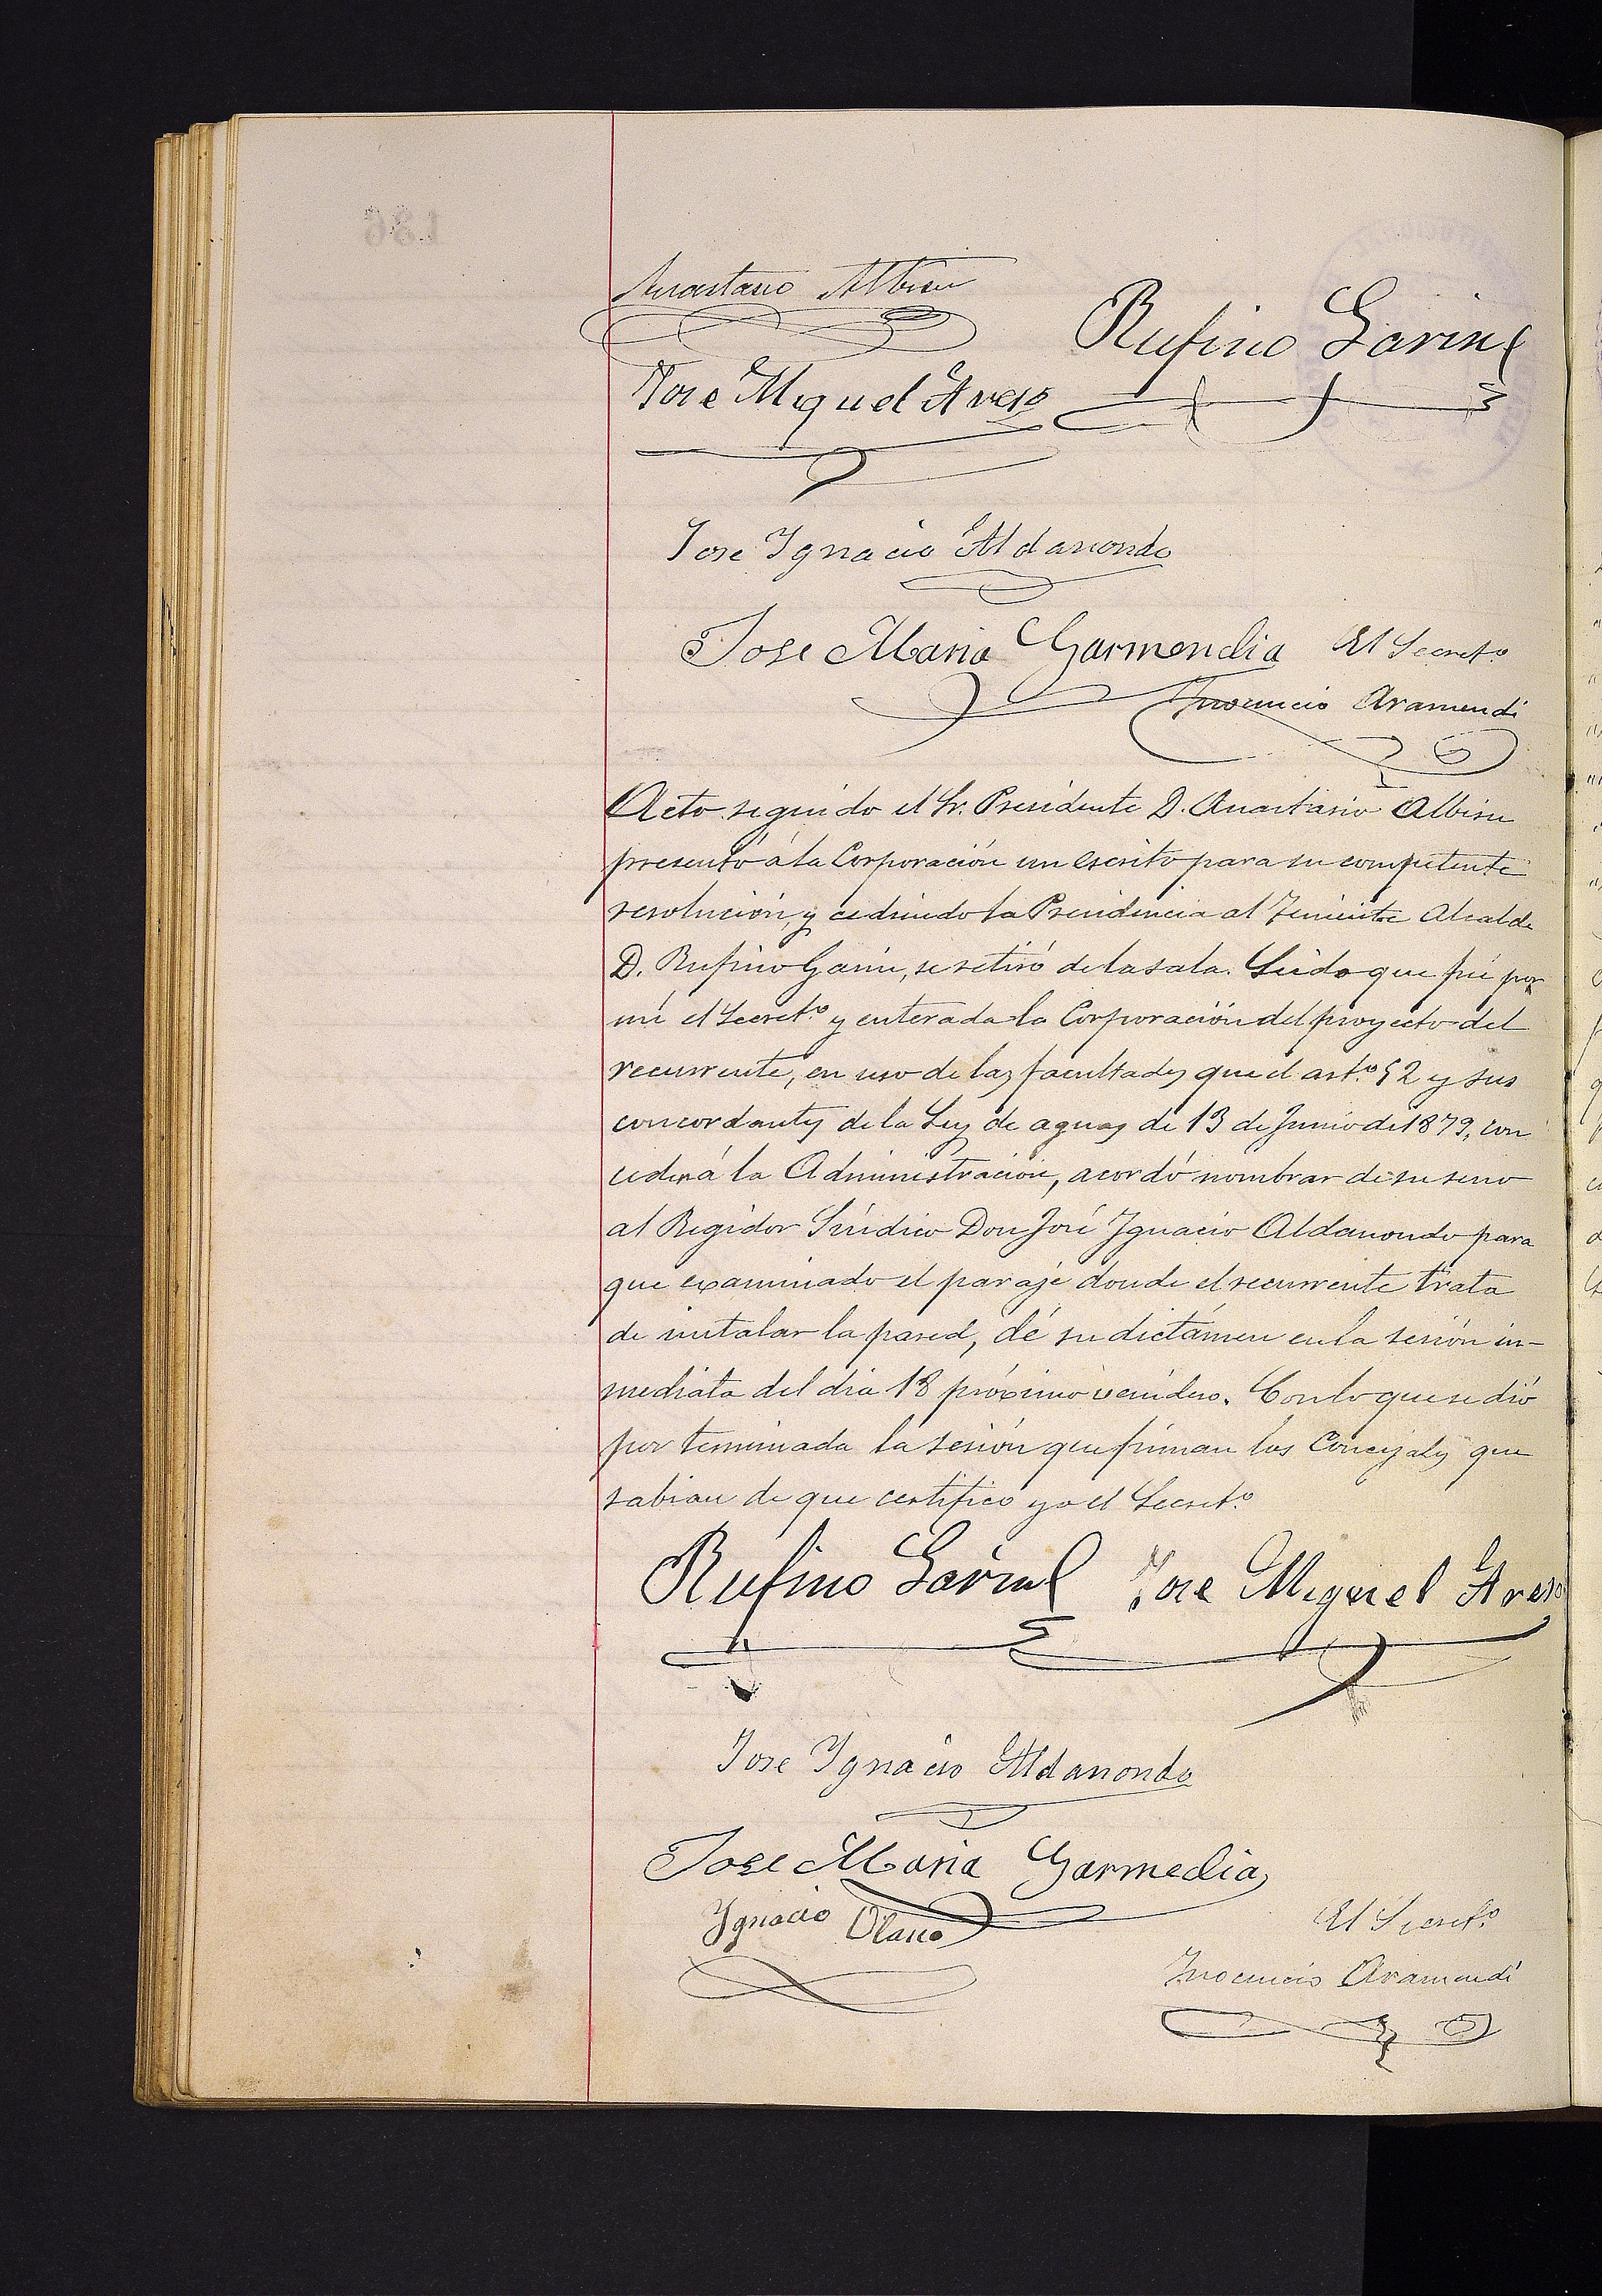 Anastasio Albisu
Rufino Garin
Jose Miguel Areso
Jose Ygnacio Aldanondo
Jose Maria Garmendia
El Secret.º
Ynocencio Aramendi
Acto seguido el Sr. Presidente D. Anastasio Albisu
presentó á la Corporación un escrito para su competente
resolución, y cediendo la Presidencia al Teniente Alcalde
D. Rufino Garin, se retiró de la sala. Leido que fué por
mi el Secret.º y enterada la Corporación del proyecto del
recurrente, en uso de las facultades que el art.º 52 y sus
concordantes de la Ley de aguas de 13 de Junio de 1879, con
cede á la Administración, acordó nombrar de su seno
al Regidor Síndico Don José Ygnacio Aldanondo para
que examinado el paraje donde el recurrente trata
de instalar la pared, dé su dictámen en la sesión in-
mediata del dia 18 próximo venidero. Con lo que se dió
por terminada la sesión que firman los Concejales que
sabian de que certifico yo el Secret.º
Rufino Garin Jose Miguel Areso
Jose Ygnacio Aldanondo
Jose Maria Garmedia
Ygnacio Olano
El Secret.º
Ynocencio Aramendi